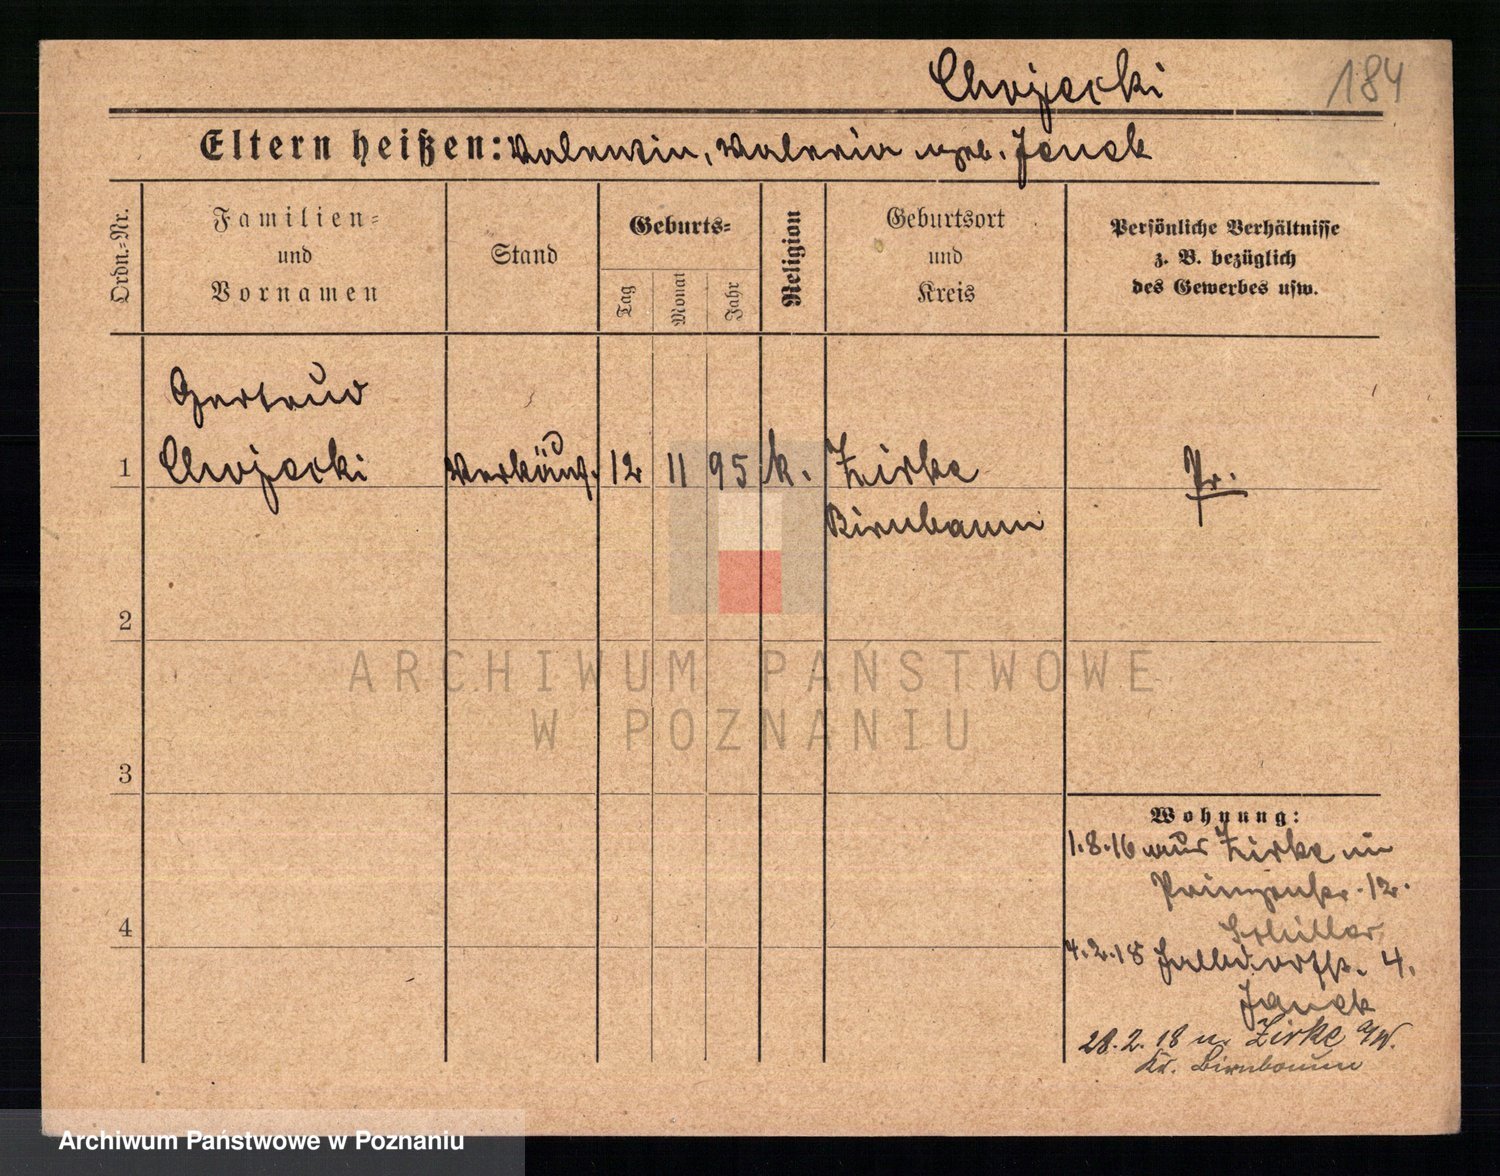 Chojecki
184
Eltern heißen: Valentin, Valeria geb. Janek
Ordn.=Nr.
Familien=
und
Vornamen
Stand
Geburts=
Tag
Monat
Jahr
Religion
Geburtsort
und
Kreis
Persönliche Verhältnisse
z. B. bezüglich
des Gewerbes usw.
Gertrud
1 Chojecki Verkäuf. 12 11 95 k. Zirke Pr.
Birnbaum
2
ARCHIWUM PAŃSTWOWE
W POZNANIU
3
Wohnung:
1.8.16 aus Zirke
Prinzenstr. 12.
Schiller
4
4.2.18 4.
Janek
28.2.18 n. Zirke a/W.
Kr. Birnbaum
Archiwum Państwowe w Poznaniu